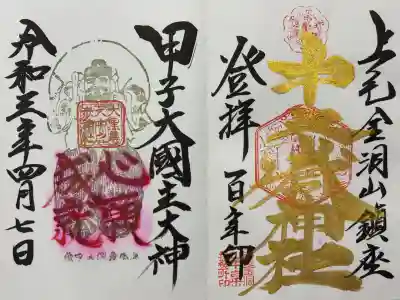 上毛金洞山鎮座
中之嶽神社
登拝百年印
甲子大國主大神
心願成就
令和三年四月七日